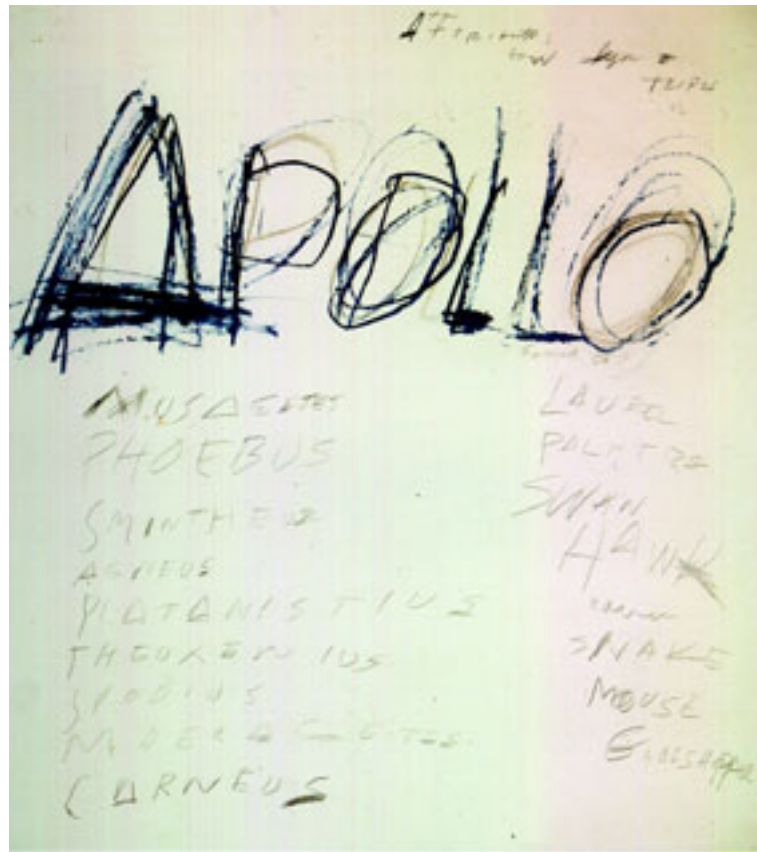 APOLLO
MUSAGETES
PHOEBUS
SMINTHEUS
PLATANISTIUS
THEOXENIUS
SPODIUS
MOERAGETES
CARNEUS
LAUREL
PALM TREE
SWAN
HAWK
SNAKE
MOUSE